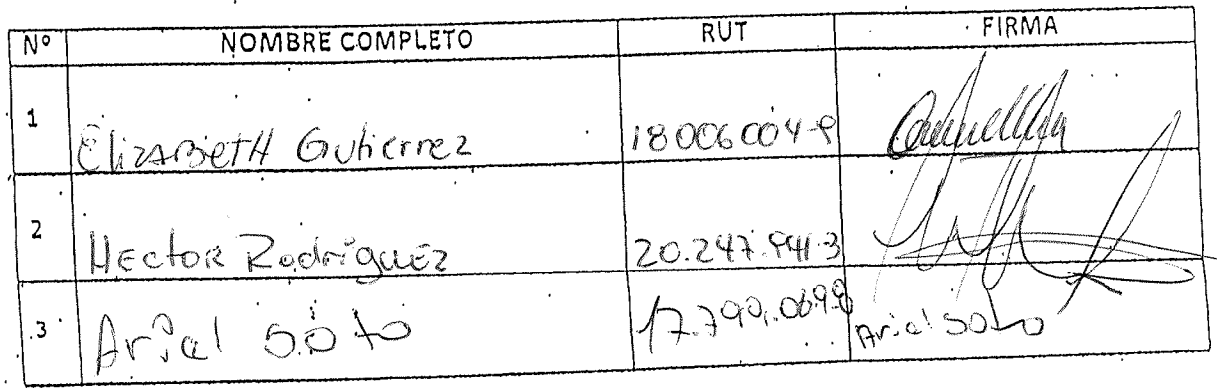 Nº NOMBRE COMPLETO RUT FIRMA
1 Elizabeth Gutierrez 18006004-9
2 Hector Rodriguez 20.247.941-3
3 Ariel Soto 17.790.069-8 Ariel Soto